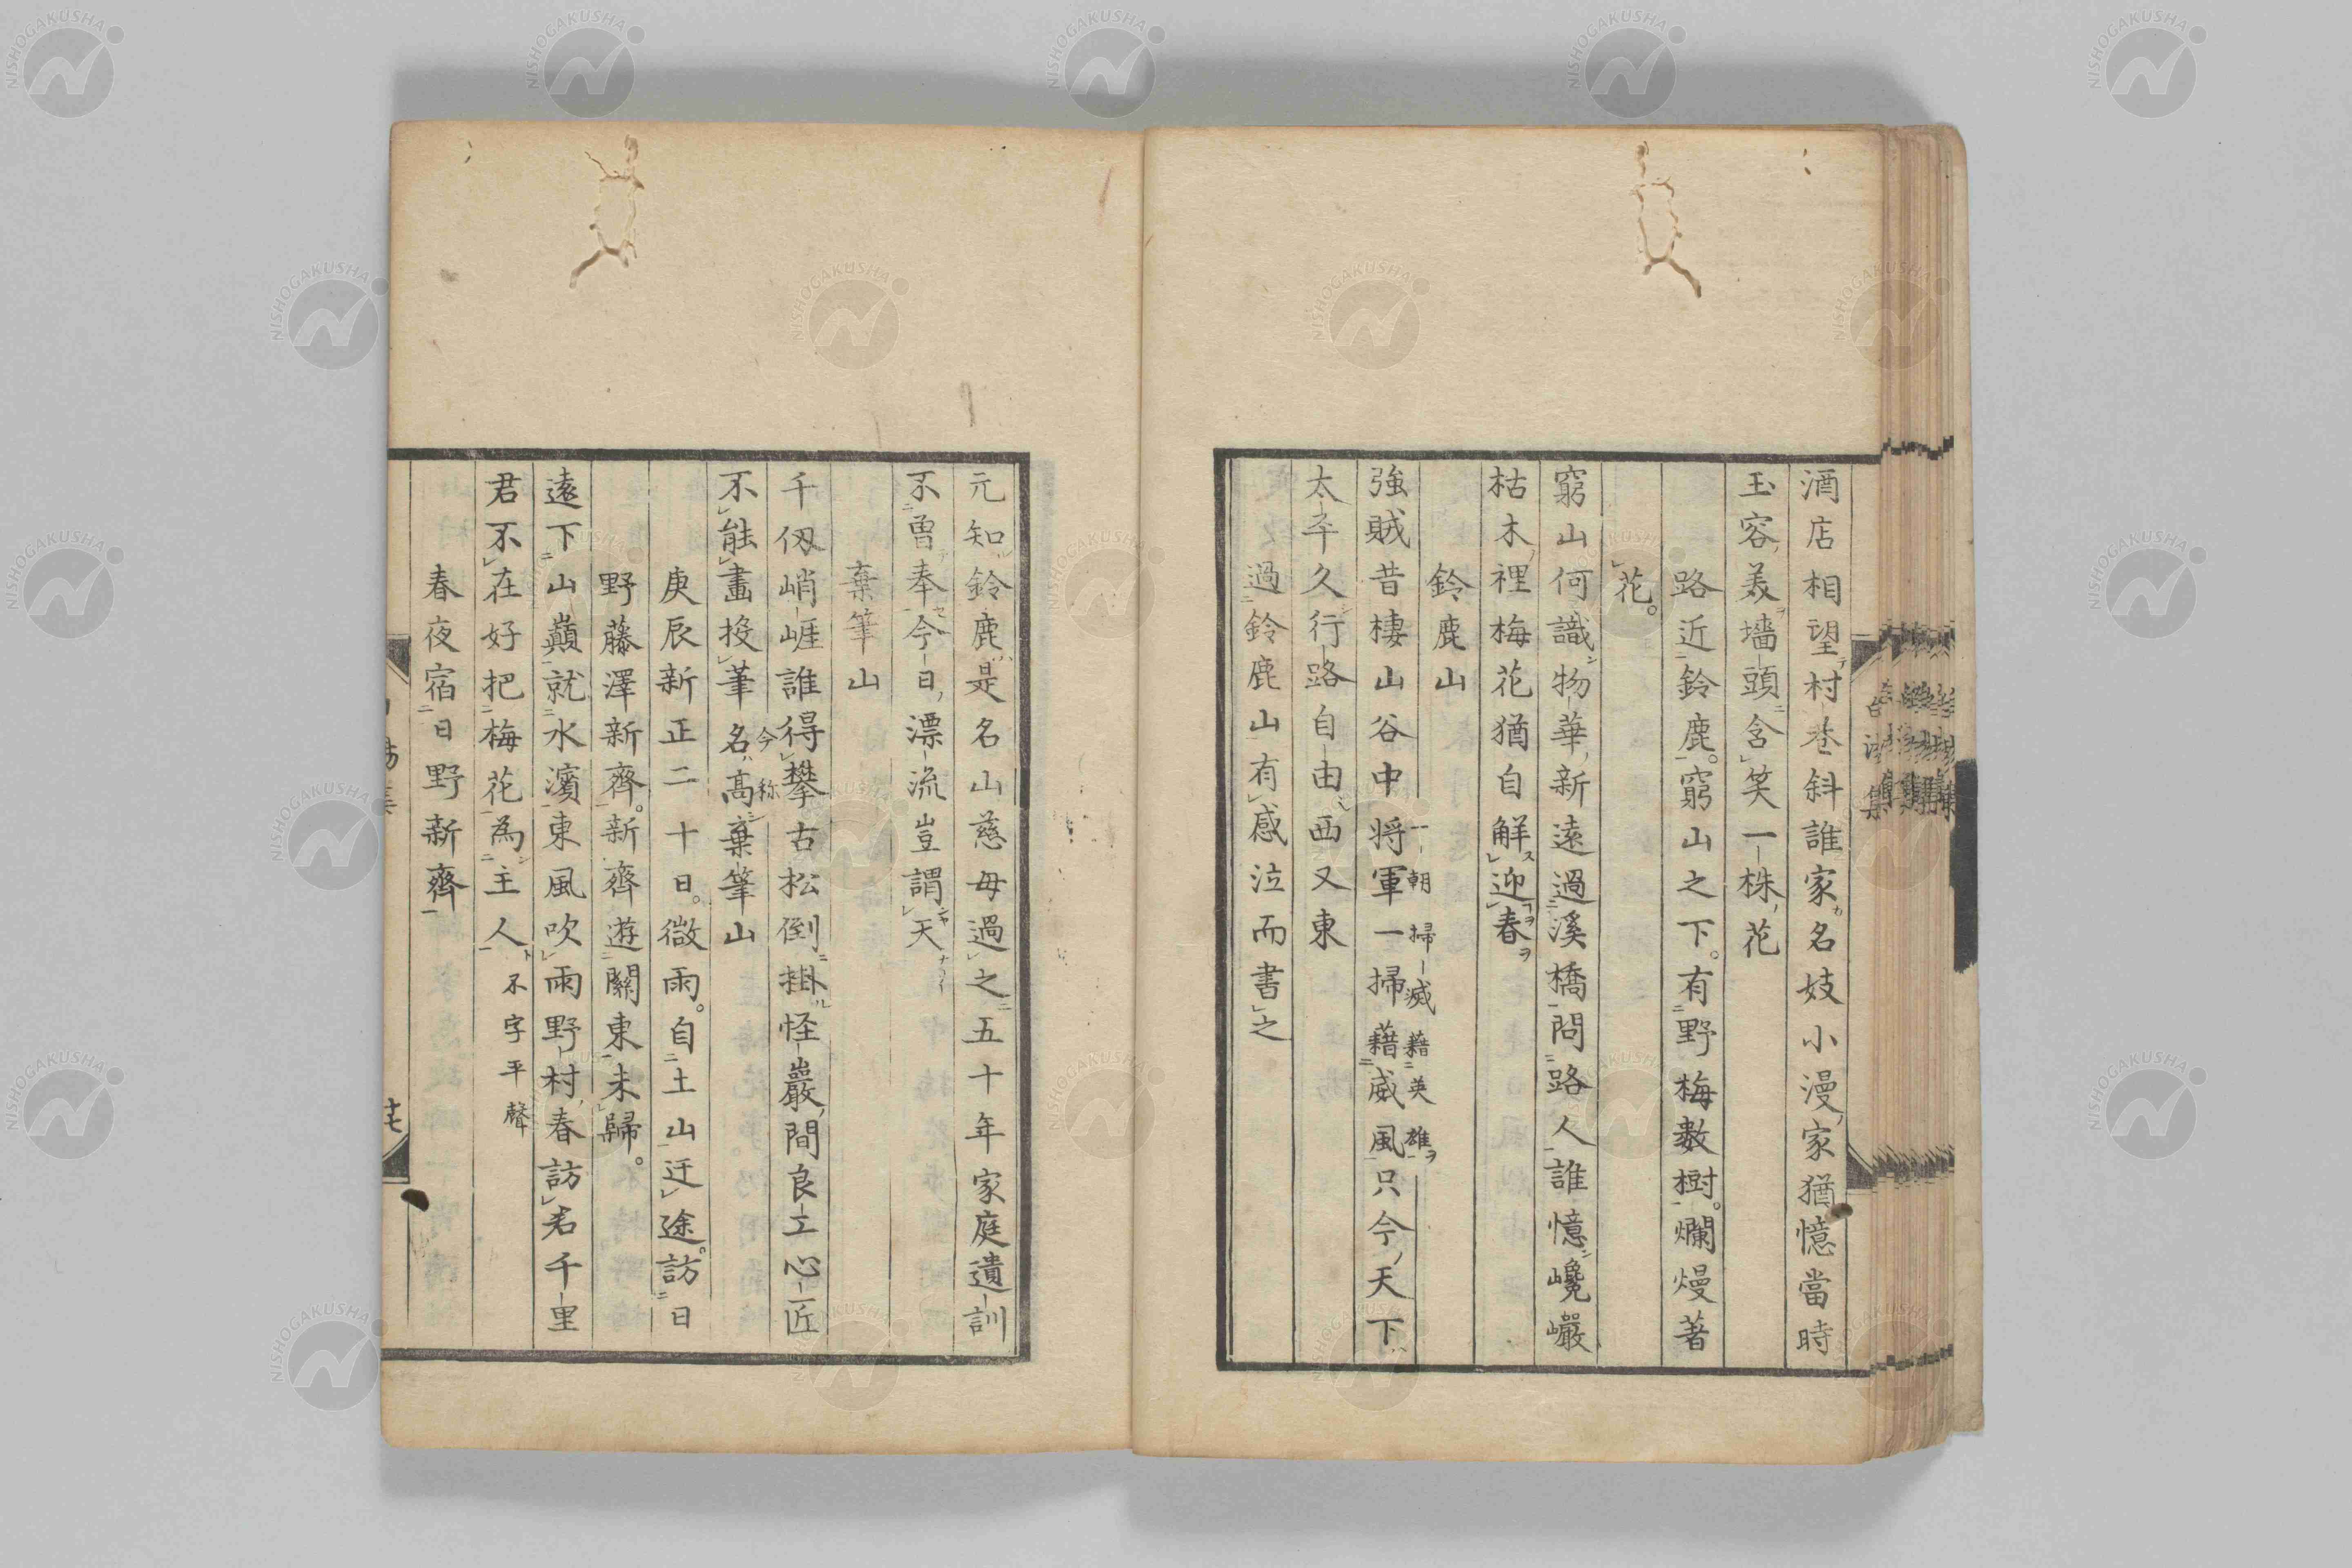 酒店相望村巷斜誰家名妓小漫家猶憶當時
玉容美墻頭含笑一株花
路近鈴鹿。窮山之下。有野梅數樹。爛熳著
花。
窮山何識物華新遠過溪橋問路人誰憶巉巖
枯木裡梅花猶自解迎春
鈴鹿山
一朝掃滅藉英雄
強賊昔棲山谷中将軍一掃藉威風只今天下
太平久行路自由西又東
過鈴鹿山有感泣而書之
元知鈴鹿是名山慈母過之五十年家庭遺訓
不曽奉今日漂流豈謂天
棄筆山
千仭峭崕誰得攀古松倒掛怪巖間良工心匠
今称
不能畫投筆名高棄筆山
庚辰新正二十日。微雨。自土山迂途。訪日
野藤澤新齊。新齊遊關東未歸。
遠下山巔就水濱東風吹雨野村春訪君千里
君不在好把梅花為主人
不字平聲
春夜宿日野新齊
NISHOGAKUSHA